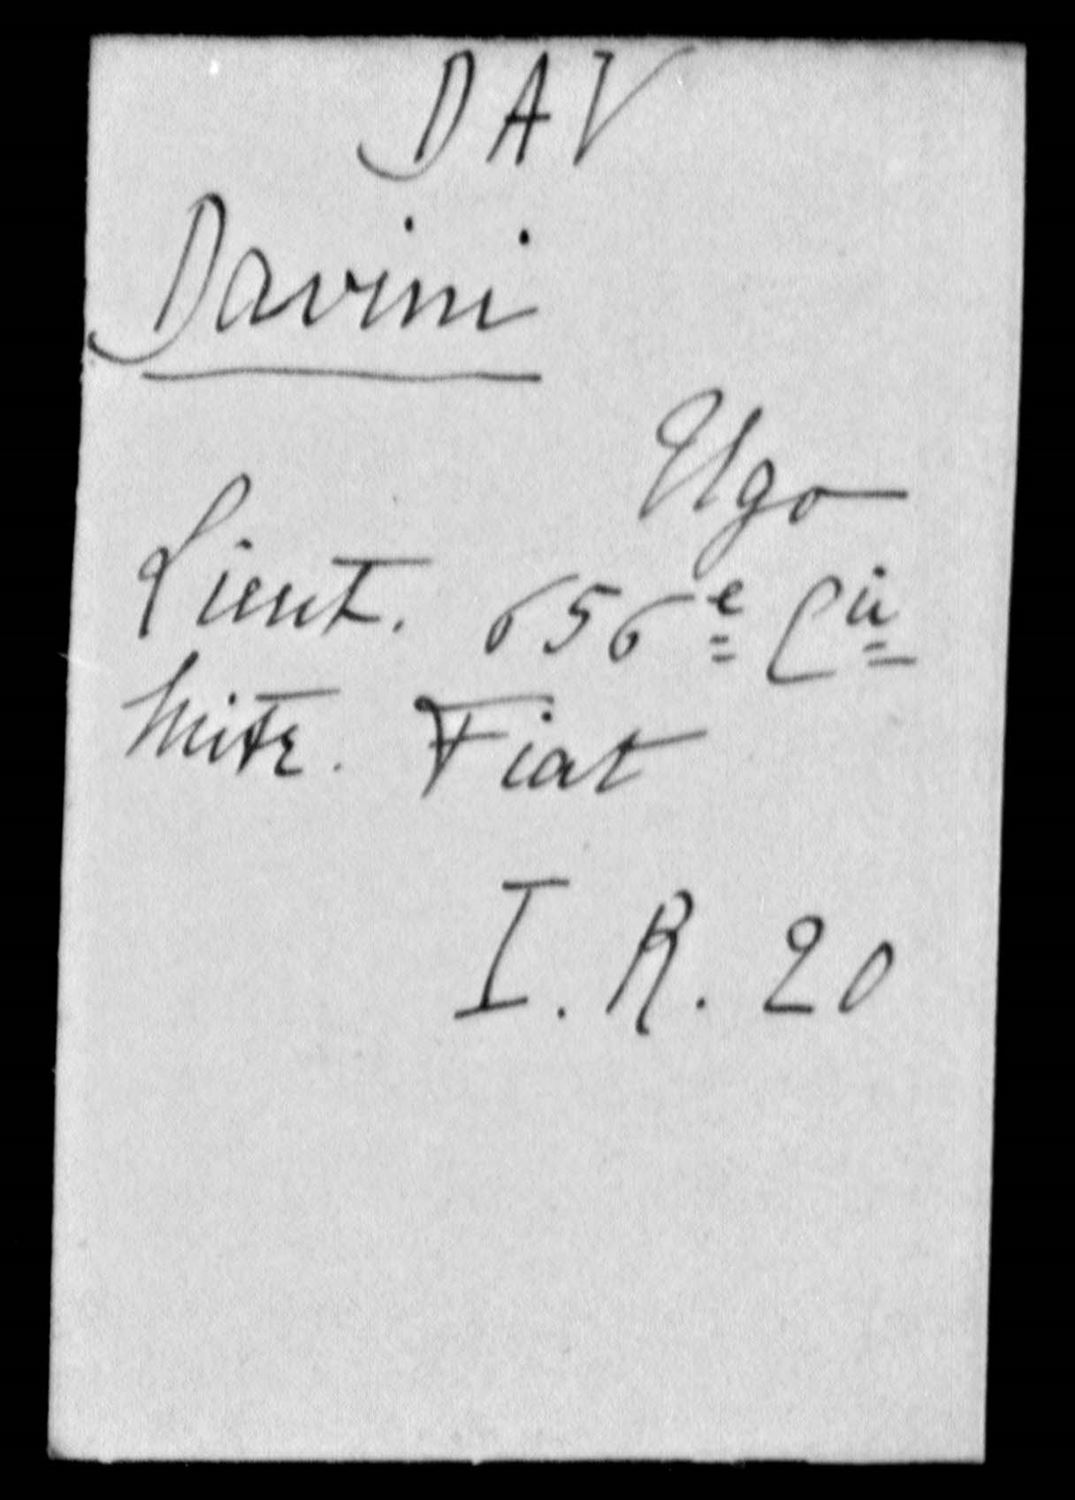 DAV
Davini
Ugo
Lieut. 656e Cie
Mitr. Fiat
I. R. 20